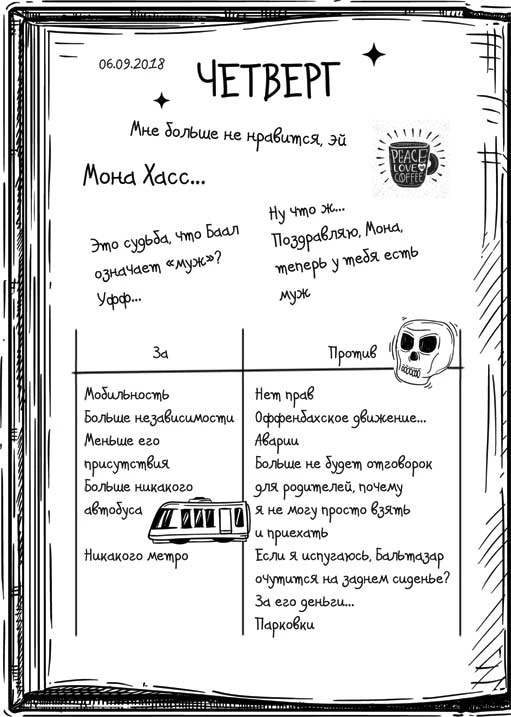 06.09.2018
ЧЕТВЕРГ
Мне больше не нравится, эй
PEACE
LOVE
COFFEE
Мона Хасс...
Это судьба, что Баал
означает «муж»?
Уффф...
Ну что ж...
Поздравляю, Мона,
теперь у тебя есть
муж
За
Мобильность
Больше независимости
Меньше его
присутствия
Больше никакого
автобуса
Никакого метро
Против
Нет прав
Оффенбахское движение...
Аварии
Больше не будет отговорок
для родителей, почему
я не могу просто взять
и приехать
Если я испугаюсь, Бальтазар
очутится на заднем сиденье?
За его деньги...
Парковки